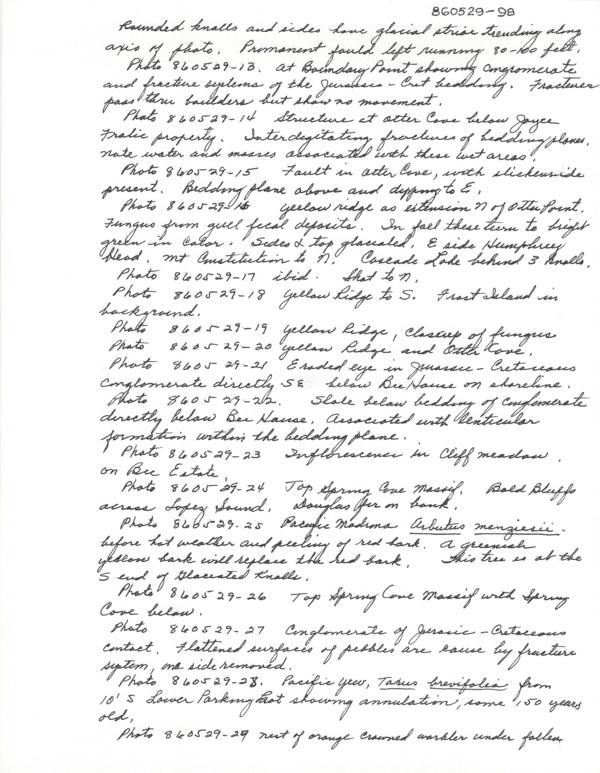 860529-98
Rounded knolls and sides have glacial striae trending along
axis of photo. Promanent fould left running 80-100 feet.
Photo 860529-13. At Boundary Point showing conglomerate
and fracture systems of the Jurassic-Cret bedding. Fractures
pass thru boulders but show no movement.
Photo 860529-14 Structure at Otter Cove below Joyce
property. Interdigitating fractures of bedding planes.
Note water and mosses associated with these wet areas.
Photo 860529-15 Fault in Otter Cove, with slickenside
present. Bedding plane above and dipping to E.
Photo 860529-16 Yellow ridge as extension N of Otter Point.
Fungus from gull fecal deposits. In fall these turn to bright
green in color. Sides & top glaciated. E side Humphrey
Head. Mt Constitution to N. Cascade Lake behind 3 knolls.
Photo 860529-17 ibid. Shot to N.
Photo 860529-18 Yellow Ridge to S. Frost Island in
background.
Photo 860529-19 Yellow Ridge, closeup of fungus
Photo 860529-20 Yellow Ridge and Otter Cove.
Photo 860529-21 Eroded eye in Jurassic-Cretaceous
conglomerate directly SE below Bee House on shoreline.
Photo 860529-22. Shale below bedding of conglomerate
directly below Bee House. Associated with lenticular
formation within the bedding plane.
Photo 860529-23 Inflorescence in Cliff meadow
on Bee Estate.
Photo 860529-24 Top Spring Cove Massif. Bald Bluffs
across Lopez Sound. Douglas fir on bank.
Photo 860529-25 Pacific Madrona Arbutus menziesii
before hot weather and peeling of red bark. A greenish
yellow bark will replace the red bark. This tree is at the
S end of Glaciated Knolls.
Photo 860529-26 Top Spring Cove Massif with Spring
Cove below.
Photo 860529-27 Conglomerate of Jurassic-Cretaceous
contact. Flattened surfaces of pebbles are cause by fracture
system, one side removed.
Photo 860529-28. Pacific Yew, Taxus brevifolia from
10' S Lower Parking Lot showing annulation, some 150 years
old.
Photo 860529-29 nest of orange crowned warbler under fallen